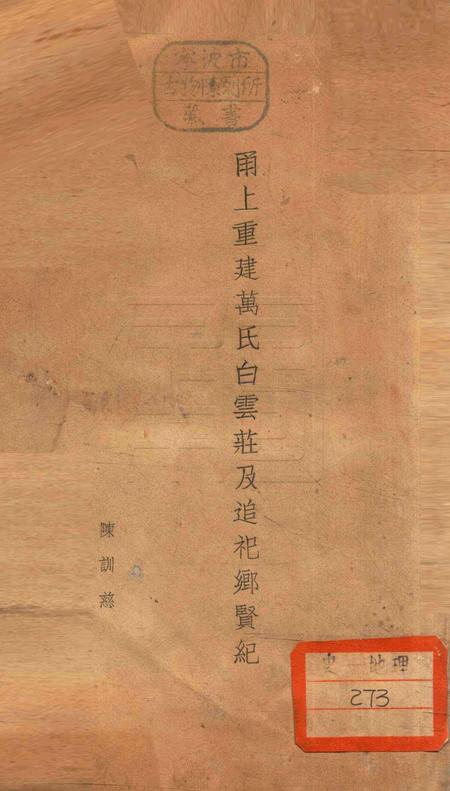 寧波市
古物陳列所
藏書
甬上重建萬氏白雲莊及追祀鄉賢紀
陳訓慈
史 地理
273